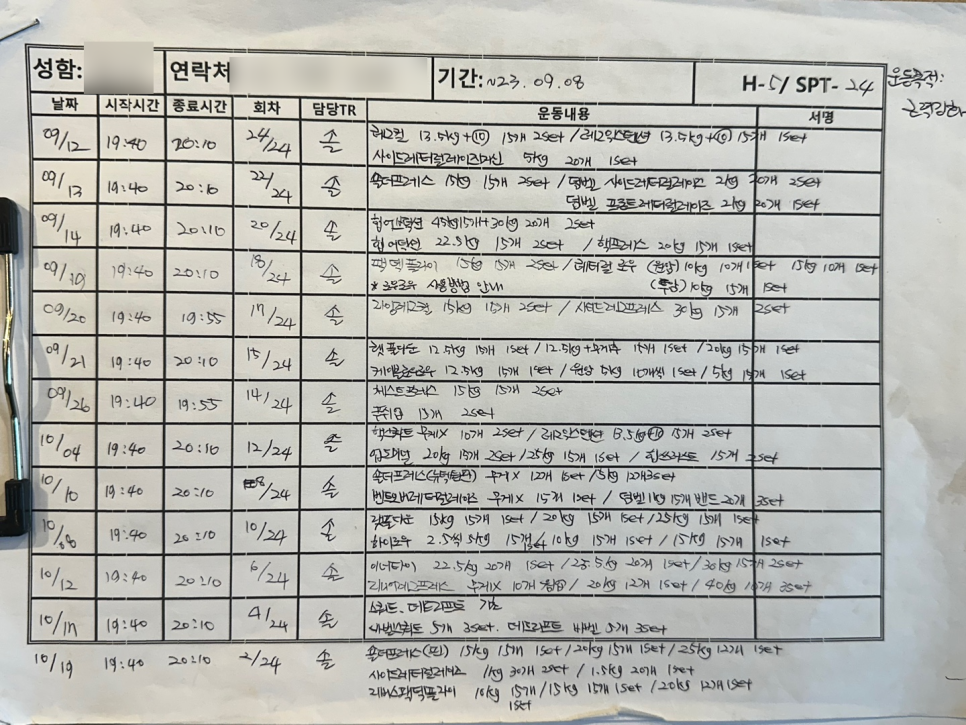 성함: 연락처 기간: ~23.09.08 H-5/ SPT-24 운동목적: 근력강화
날짜 시작시간 종료시간 회차 담당TR 운동내용 서명
09/12 19:40 20:10 24/24 솔 레그컬 13.5kg+⑩ 15개 2set / 레그익스텐션 13.5kg+⑩ 15개 1set
사이드레터럴레이즈머신 5kg 20개 1set
09/13 19:40 20:10 22/24 솔 숄더프레스 15kg 15개 2set / 덤벨 사이드레터럴레이즈 2kg 20개 2set
덤벨 프론트레터럴레이즈 2kg 20개 1set
09/14 19:40 20:10 20/24 솔 힙 어브덕션 45kg15개+30kg 20개 2set
힙 어덕션 22.5kg 15개 2set / 핵프레스 20kg 15개 1set
09/19 19:40 20:10 18/24 솔 팩덱플라이 15kg 15개 2set / 레터럴 로우 (원암) 10kg 10개 1set 15kg 10개 1set
* 로우로우 사용방법 안내 (투암) 10kg 15개 1set
09/20 19:40 19:55 17/24 솔 라잉레그컬 15kg 15개 2set / 시티드레그프레스 30kg 15개 2set
09/21 19:40 20:10 15/24 솔 랫풀다운 12.5kg 15개 1set / 12.5kg+무게추 15개 1set / 20kg 15개 1set
케이블롱로우 12.5kg 15개 1set / 원암 5kg 10개씩 1set / 5kg 15개 1set
09/26 19:40 19:55 14/24 솔 체스트프레스 15kg 15개 2set
푸쉬업 13개 2set
10/04 19:40 20:10 12/24 솔 핵스쿼트 무게X 10개 2set / 레그익스텐션 13.5kg+⑩ 15개 2set
20kg 15개 2set / 25kg 15개 1set / 힙쓰러스트 15개 2set
10/10 19:40 20:10 8/24 솔 숄더프레스 무게X 12개 1set / 5kg 12개 3set
벤트오버레터럴레이즈 무게X 15개 1set / 덤벨 1kg 15개 밴드 20개 3set
10/08 19:40 20:10 10/24 솔 랫풀다운 15kg 15개 1set / 20kg 15개 1set / 25kg 15개 1set
하이로우 2.5씩 5kg 15개 1set / 10kg 15개 1set / 15kg 15개 1set
10/12 19:40 20:10 6/24 솔 이너타이 22.5kg 20개 1set / 23.5kg 20개 1set / 30kg 15개 2set
리니어레그프레스 무게X 10개 / 20kg 12개 1set / 40kg 10개 3set
10/17 19:40 20:10 4/24 솔 스쿼트. 데드리프트 기초
바벨스쿼트 5개 3set. 데드리프트 바벨 5개 3set
10/19 19:40 20:10 2/24 솔 숄더프레스(핀) 15kg 15개 1set / 20kg 15개 1set / 25kg 12개 1set
사이드레터럴레이즈 1kg 30개 2set / 1.5kg 20개 1set
리버스팩덱플라이 10kg 15개 1set / 15kg 15개 1set / 20kg 12개 1set